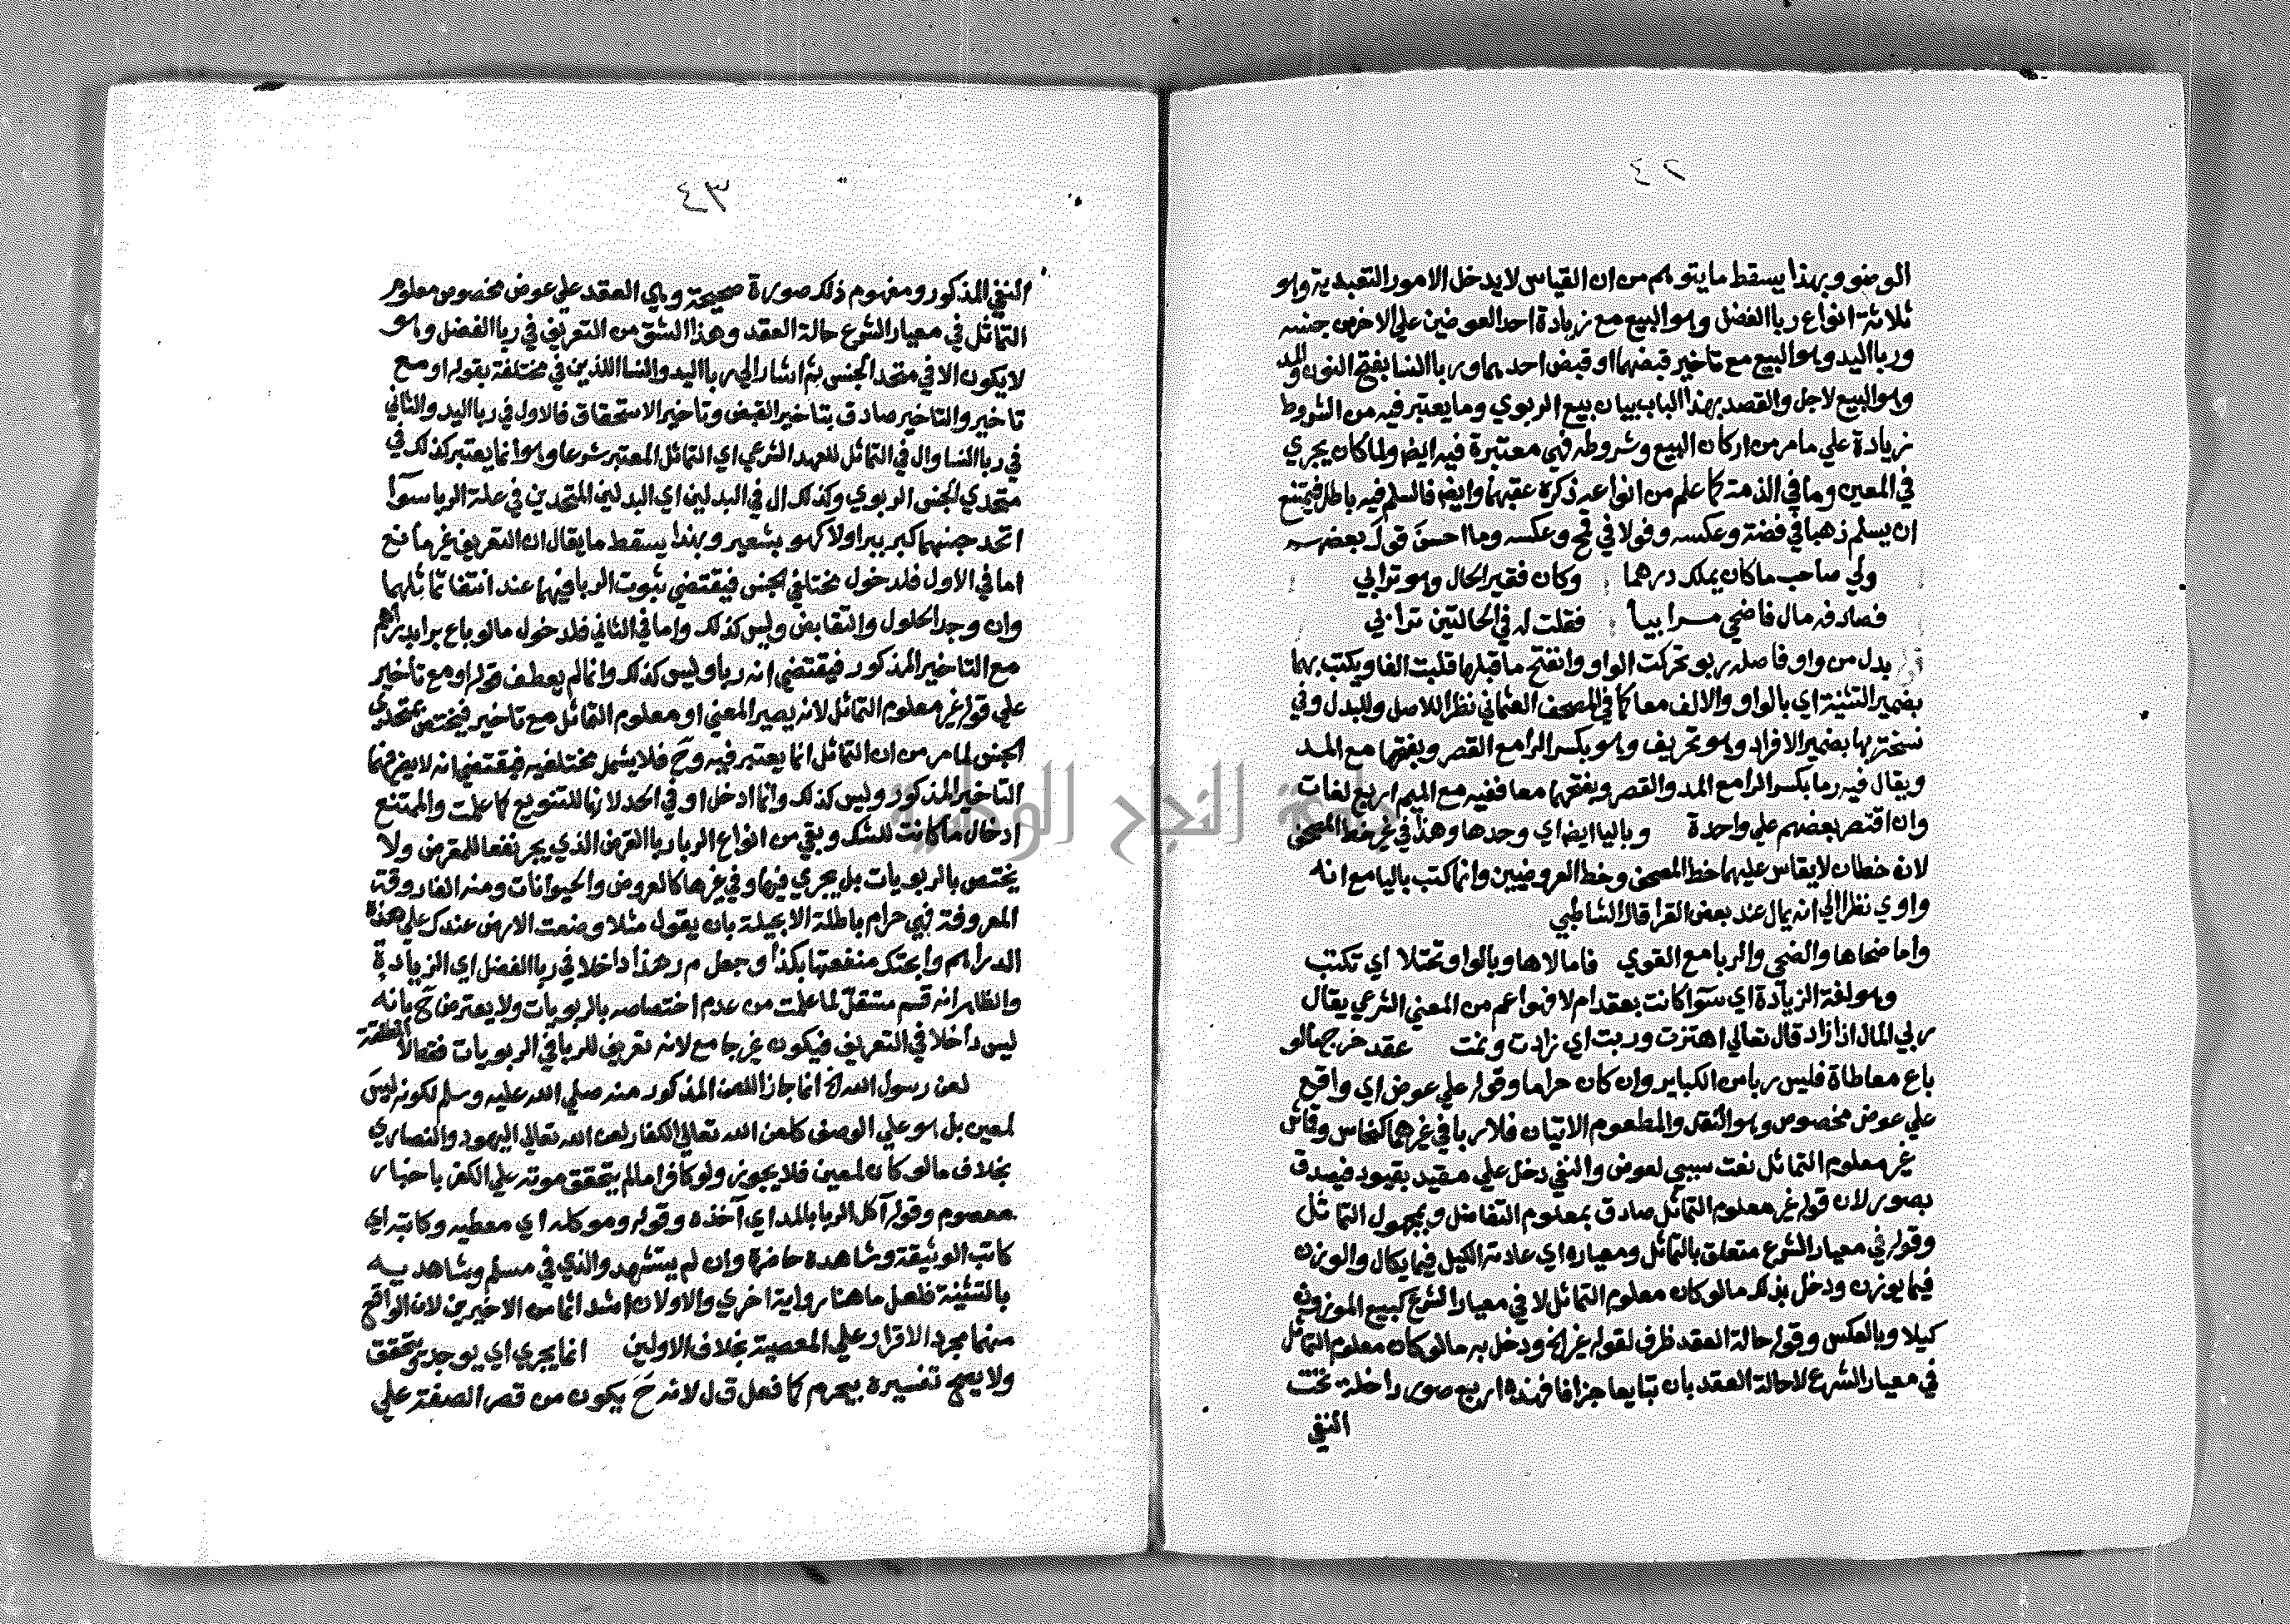 ٤٢
الوضو وبهذا يسقط ما يتوهم من ان القياس لا يدخل الامور التعبدية وهو
ثلاثة انواع ربا الفضل وهو البيع مع زيادة احد العوضين علي الاخر من جنسه
وربا اليد وهو البيع مع تاخير قبضهما او قبض احدهما وربا النسا بفتح النون والمد
وهو البيع لاجل والقصد بهذا الباب بيان بيع الربوي وما يعتبر فيه من الشروط
زيادة علي ما مر من اركان البيع وشروطه فهي معتبرة فيه ايضا ولما كان يجري
في المعين وما في الذمة كما علم من انواعه ذكره عقبهما وايضا فالسلم فيه باطل فيمتنع
ان يسلم ذهبا في فضة وعكسه وفولا في قمح وعكسه وما احسن قول بعضهم
ولي صاحب ما كان يملك درهما وكان فقير الحال وهو ترابي
فصادفه مال فاضحي مرابيا فقلت له في الحالتين ترابي
بدل من واو فاصله ربو تحركت الواو وانفتح ما قبلها قلبت الفا ويكتب بهما
بضمير التثنية اي بالواو والالف معا كما في المصحف العثماني نظرا للاصل وللبدل وفي
نسخة بها بضمير الافراد وهو تحريف وهو بكسر الرا مع القصر وبفتحها مع المد
ويقال فيه رما بكسر الرا مع المد والقصر وبفتحها معا ففيه مع الميم اربع لغات
وان اقتصر بعضهم علي واحدة وباليا ايضا اي وحدها وهذا في غير خط المصحف
لانه خطان لا يقاس عليهما خط المصحف وخط العروضيين وانما كتب باليا مع انه
واوي نظرا الي انه يمال عند بعض القرا قال الشاطبي
واما ضحاها والضحي والربا مع القوي فامالاها وبالواو تختلا اي تكتب
وهو لغة الزيادة اي سوا كانت بعقد ام لا فهو اعم من المعني الشرعي يقال
ربي المال اذا زاد قال تعالي اهتزت وربت اي زادت ونمت عقد خرج مالو
باع معاطاة فليس ربا من الكباير وان كان حراما وقوله علي عوض اي واقع
علي عوض مخصوص وهو النقد والمطعوم الاتيان فلا ربا في غيرهما كنحاس وقماش
غير معلوم التماثل نعت سببي لعوض والنفي دخل علي مقيد بقيود فيصدق
بصور لان قوله غير معلوم التماثل صادق بمعلوم التفاضل وبمجهول التماثل
وقوله في معيار الشرع متعلق بالتماثل ومعياره اي عادته الكيل فيما يكال والوزن
فيما يوزن ودخل بذلك مالو كان معلوم التماثل لا في معيار الشرع كبيع الموزون
كيلا وبالعكس وقوله حالة العقد ظرف لقوله غير الخ ودخل به مالو كان معلوم التماثل
في معيار الشرع لا حالة العقد بان تبايعا جزافا فهذه اربع صور داخلة تحت
النفي
٤٣
النفي المذكور ومفهوم ذلك صورة صحيحة وهي العقد علي عوض مخصوص معلوم
التماثل في معيار الشرع حالة العقد وهذا الشق من التعريف في ربا الفضل وهو
لا يكون الا في متحد الجنس ثم اشار الي ربا اليد والنسا اللذين في مختلفة بقوله او مع
تاخير والتاخير صادق بتاخير القبض وتاخير الاستحقاق فالاول في ربا اليد والثاني
في ربا النسا وال في التماثل للعهد الشرعي اي التماثل المعتبر شرعا وهو انما يعتبر كذلك في
متحدي الجنس الربوي وكذلك ال في البدلين اي البدلين المتحدين في علة الربا سوآ
اتحد جنسهما كبر ببر اولا كهو بشعير وبهذا يسقط ما يقال ان التعريف غير مانع
اما في الاول فلدخول مختلفي الجنس فيقتضي ثبوت الربا فيهما عند انتفا تماثلهما
وان وجد الحلول والتقابض وليس كذلك واما في الثاني فلدخول مالو باع برا بدراهم
مع التاخير المذكور فيقتضي انه ربا وليس كذلك وانما لم يعطف قوله او مع تاخير
علي قوله غير معلوم التماثل لانه يصير المعني او معلوم التماثل مع تاخير فيختص بمتحدي
الجنس لما مر من ان التماثل انما يعتبر فيه وح فلا يشمل مختلفيه فيقتضي انه لا يضر فيهما
التاخير المذكور وليس كذلك وانما ادخل او في الحد لانها للتنويع كما علمت والممتنع
ادخال ما كانت للشك وبقي من انواع الربا ربا القرض الذي يجر نفعا للمقرض ولا
يختص بالربويات بل يجري فيها وفي غيرها كالعروض والحيوانات ومنه الفاروقة
المعروفة فهي حرام باطلة الا بحيلة بان يقول مثلا وضعت الارض عندك علي هذه
الدراهم وابحتك منفعتها بكذا وجعل م ر هذا داخلا في ربا الفضل اي الزيادة
والظاهر انه قسم مستقل لما علمت من عدم اختصاصه بالربويات ولا يعترض ح بانه
ليس داخلا في التعريف فيكون غير جامع لانه تعريف للربا في الربويات فقط لا مطلقة
لعن رسول الله الخ انما جاز اللعن المذكور منه صلي الله عليه وسلم لكونه ليس
لمعين بل هو علي الوصف كلعن الله تعالي الكفار لعن الله تعالي اليهود والنصاري
بخلاف مالو كان لمعين فلا يجوز ولو كافرا مالم يتحقق موته علي الكفر باخبار
معصوم وقوله آكل الربا بالمد اي آخذه وقوله وموكله اي معطيه وكاتبه اي
كاتب الوثيقة وشاهده حاضره وان لم يستشهد والذي في مسلم وشاهديه
بالتثنية فلعل ما هنا رواية اخري والاولان اشد اثما من الاخيرين لان الواقع
منهما مجرد الاقرار علي المعصية بخلاف الاولين انما يجري اي يوجد ويتحقق
ولا يصح تفسيره بيحرم كما فعل ق ل لانه ح يكون من قصر الصفة علي